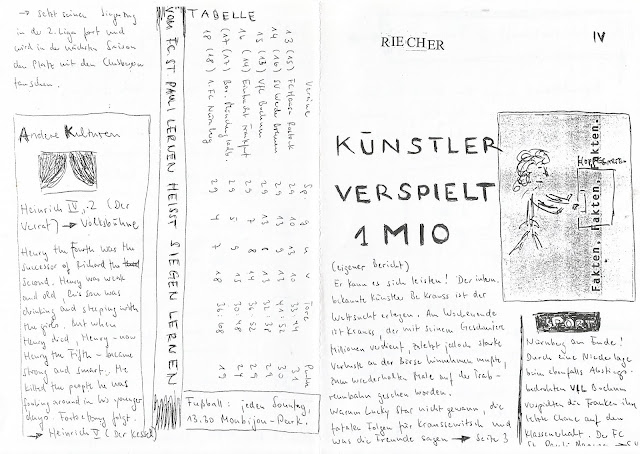 → setzt seinen Siegeszug
in der 2. Liga fort und
wird in der nächsten Saison
den Platz mit den Clubberern
tauschen.
Andere Kulturen
Heinrich IV, 2 (Der
Verrat) → Volksbühne
Henry the Fourth was the
successor of Richard the
Second. Henry was weak
and old, his son was
drinking and sleeping with
the girls. But when
Henry died, Henry - now
Henry the Fifth - became
strong and smart. He
killed the people he was
fooling around in his younger
days. Fortsetzung folgt.
→ Heinrich V (Der Kessel)
VOM FC ST. PAULI LERNEN HEISST SIEGEN LERNEN
TABELLE
Vereine Sp g u v Tore Punkte
13 (15) FC Hansa Rostock 29
14 (16) SV Werder Bremen 29
15 (13) VfL Bochum 29
16 (14) Eintracht Frankfurt 29
(17 (17) Bor. 29 5
18 (18) 1.FC Nürnberg 29 4 7 18 36:68 19
Fußball: jeden Sonntag,
13.30 Monbijou-Park.
RIECHER
IV
KÜNSTLER
VERSPIELT
1 MIO
(eigener Bericht)
Er kann es sich leisten! Der intern.
bekannte Künstler Be Krauss ist der
Wettsucht erlegen. Am Wochenende
ist Krauss, der mit seinem Geschmiere
Millionen verdient, zuletzt jedoch starke
Verluste an der Börse hinnehmen mußte,
zum wiederholten Male auf der Trab-
rennbahn gesehen worden.
Warum Lucky Star nicht gewann, die
fatalen Folgen für Kraussewitsch und
was die Freunde sagen → Seite 3
Fakten, Fakten, Fakten.
SPORT
Nürnberg am Ende!
Durch eine Niederlage
beim ebenfalls Abstiegs-
bedrohten VfL Bochum
verspielten die Franken ihre
letzte Chance auf den
Klassenerhalt. Der FC